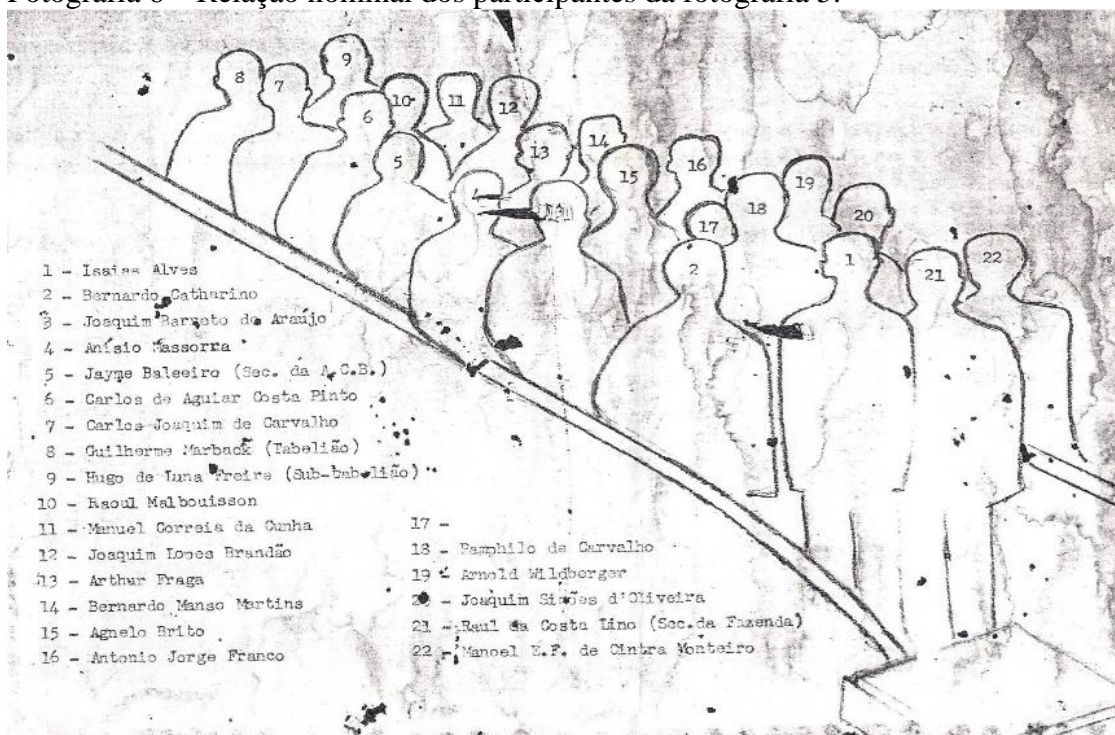 Fotografia 6 – Relação nominal dos participantes da fotografia 5.
8
7
9
6
10
11
12
5
13
14
15
16
17
18
19
20
2
1
21
22
1 - Isaias Alves
2 - Bernardo Catharino
3 - Joaquim Barreto de Araújo
4 - Anísio Massorra
5 - Jayme Baleeiro (Sec. da A.C.B.)
6 - Carlos de Aguiar Costa Pinto
7 - Carlos Joaquim de Carvalho
8 - Guilherme Marback (Tabelião)
9 - Hugo de Luna Freire (Sub-tabelião)
10 - Raoul Malbouisson
11 - Manuel Correia da Cunha
12 - Joaquim Lopes Brandão
13 - Arthur Fraga
14 - Bernardo Manso Martins
15 - Agnelo Brito
16 - Antonio Jorge Franco
17 -
18 - Pamphilo de Carvalho
19 - Arnold Wildberger
20 - Joaquim Simões d'Oliveira
21 - Raul da Costa Lino (Sec.da Fazenda)
22 - Manoel E.F. de Cintra Monteiro